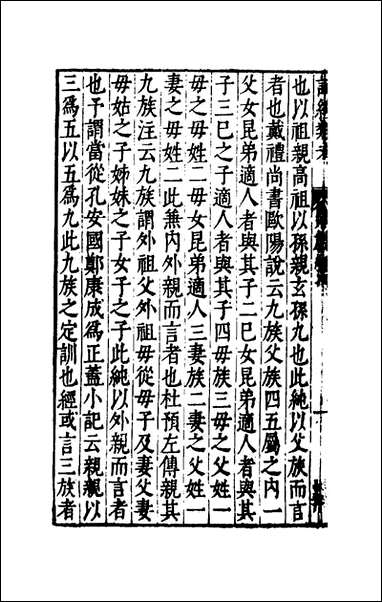 也以祖親高祖以孫親玄孫九也此純以父族而言
者也戴禮尚書歐陽說云九族父族四五屬之内一
父女昆弟適人者與其子二已女昆弟適人者與其
子三已之子適人者與其子四母族三母之父姓一
母之母姓二母女昆弟適人三妻族二妻之父姓一
妻之母姓二此兼内外親而言者也杜預左傳親其
九族注云九族謂外祖父外祖母從母子及妻父妻
母姑之子姊妹之子女子之子此純以外親而言者
也予謂當從孔安國鄭康成為正蓋小記云親親以
三為五以五為九此九族之定訓也經或言三族者